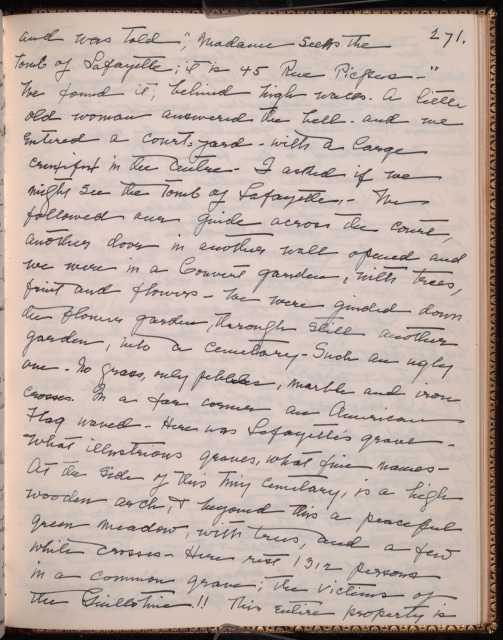 271.
and was told ", Madame seeks the
Tomb of Lafayette; it is 45 Rue Picpus -"
We found it, behind high walls. A little
old woman answered the bell. and we
entered a court-yard - with a large
crucifix in the centre - I asked if we
might see the Tomb of Lafayette, - We
followed our guide across the court,
another door in another wall opened and
we were in a Convent garden, with trees,
fruit and flowers - We were guided down
the flower garden, through still another
garden, into a cemetary - Such an ugly
one - No grass, only pebbles, marble and iron
crosses. In a far corner an American
Flag waved - Here was Lafayette's grave -
What illustrious graves, what fine names -
At the side of this tiny cemetary, is a high
wooden arch, & beyond this a peaceful
green meadow, with trees, and a few
white crosses - Here rest 1312 persons
in a common grave; the victims of
the Guillotine!! This entire property is